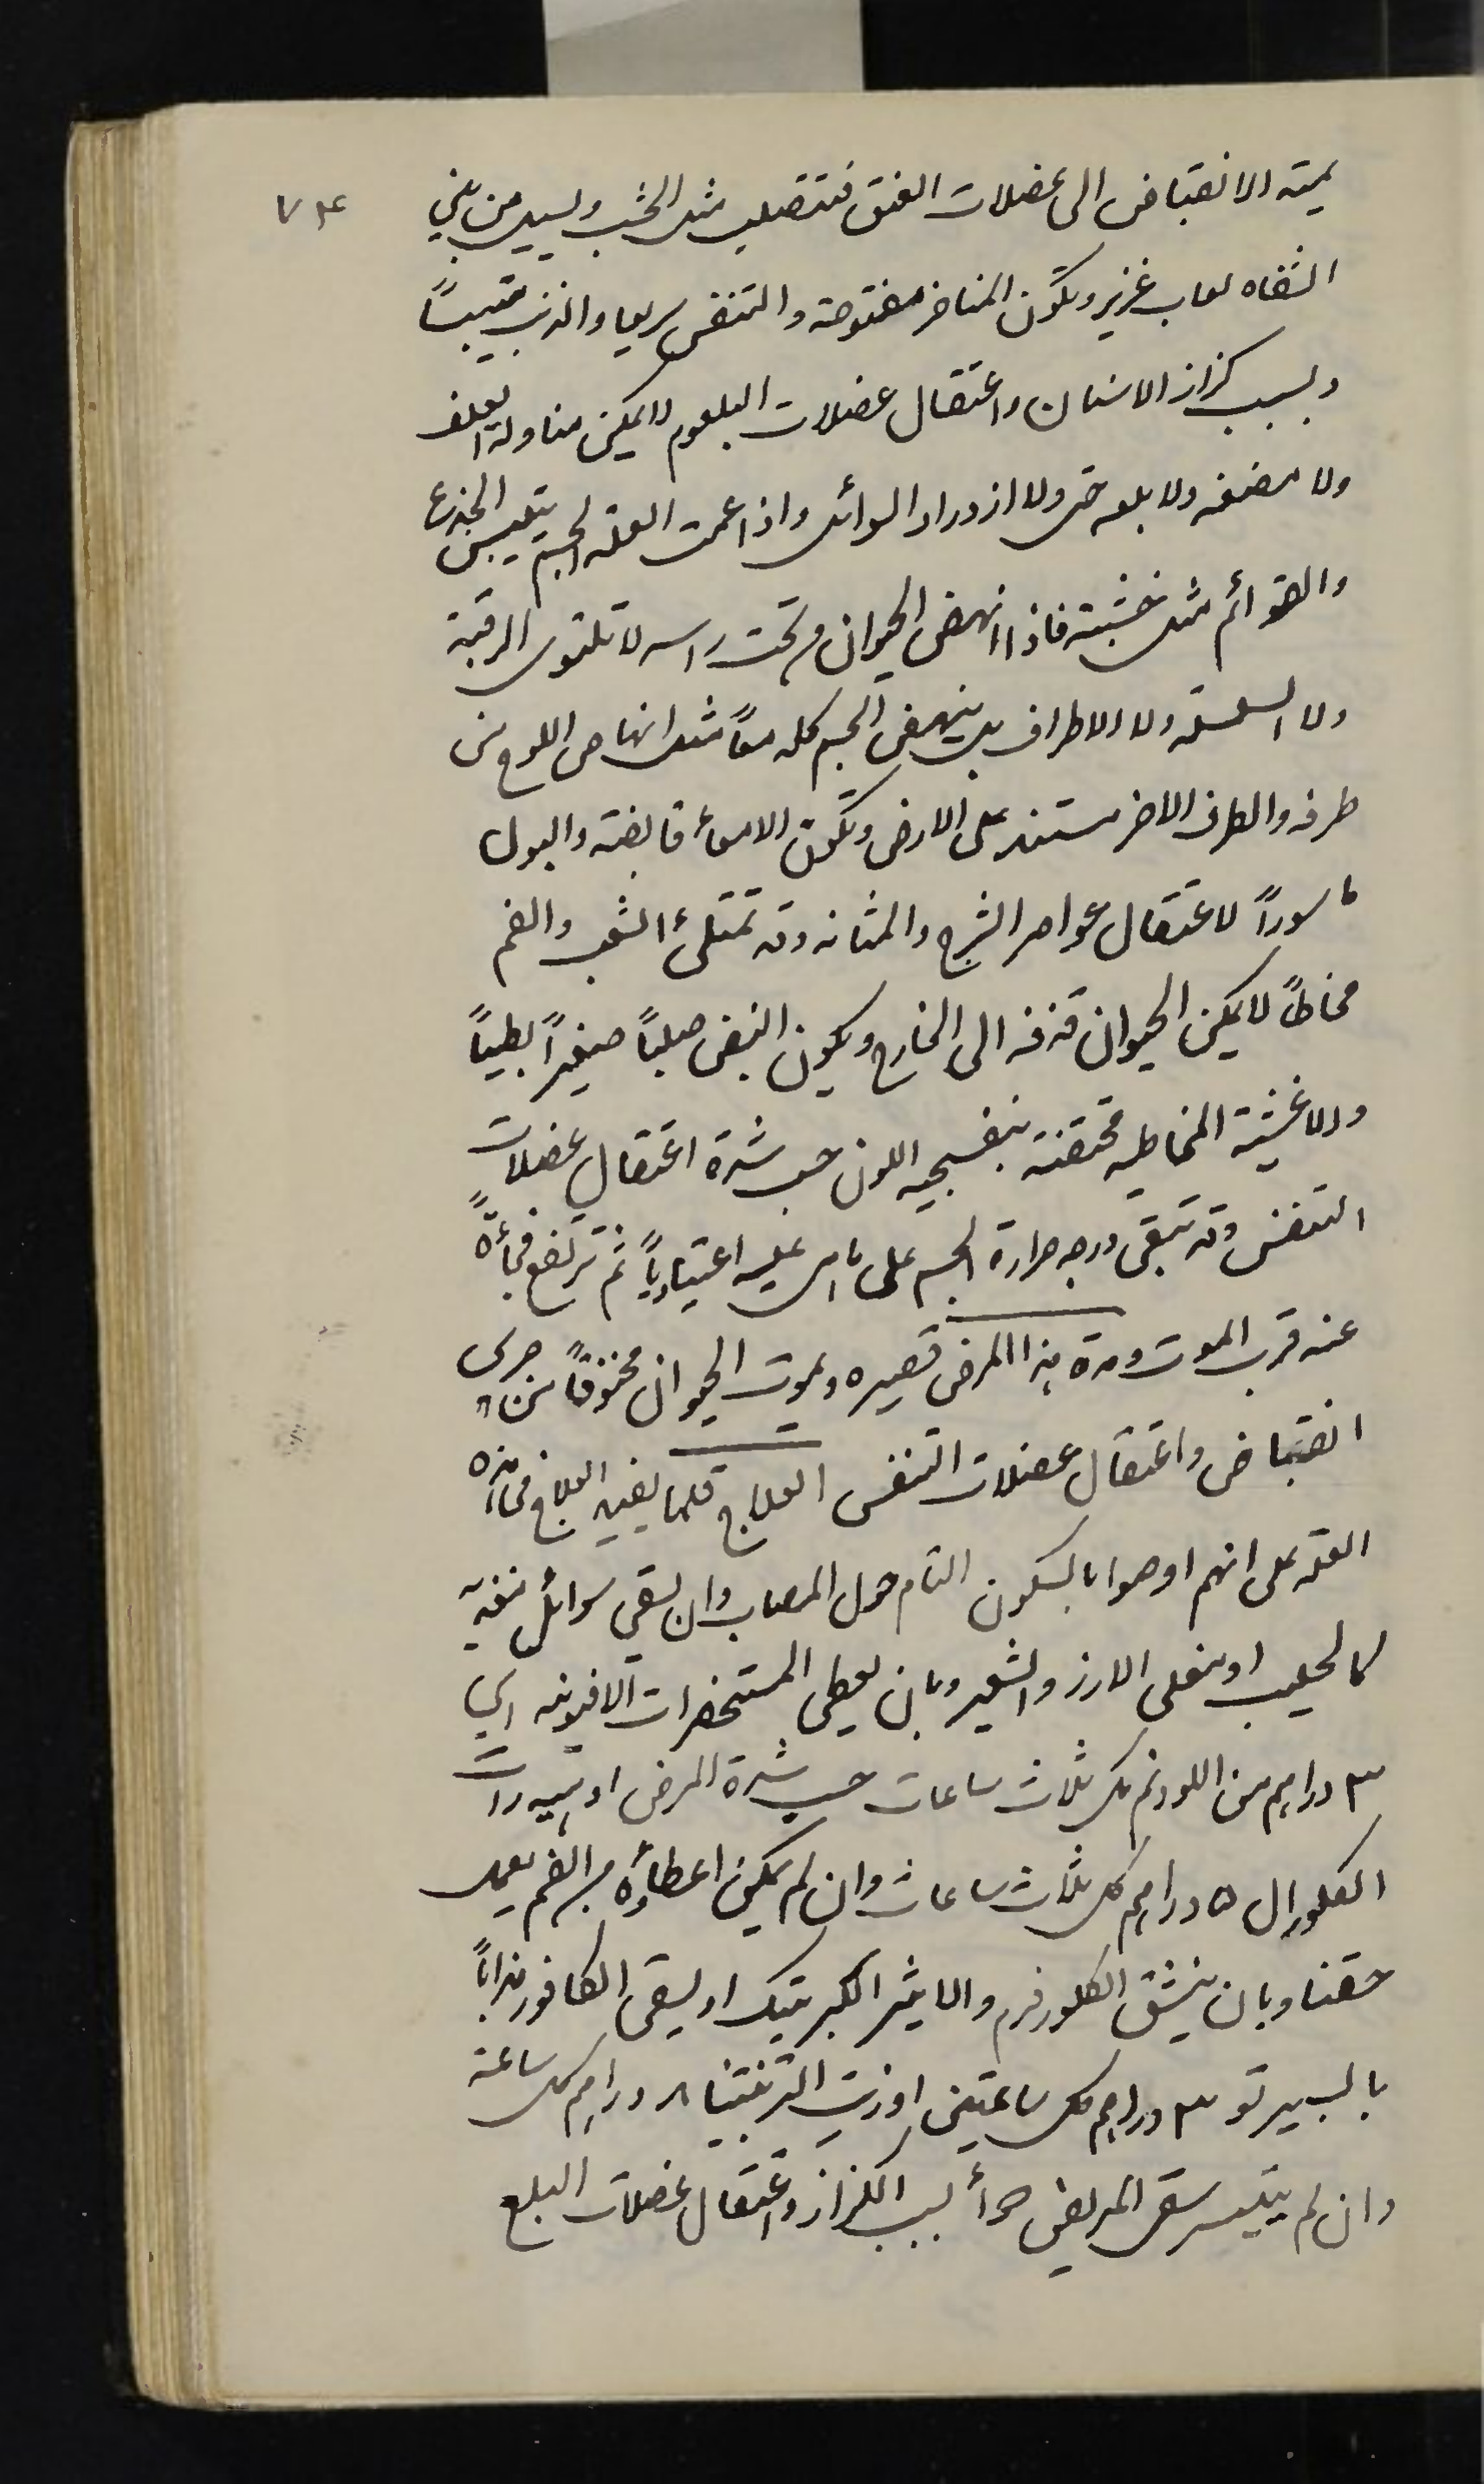 ٧٤
يمتد الانقباض الى عضلات العنق فتتصلب مثل الخشب ويسيل من بين
الشفاه لعاب غزير وتكون المناخر مفتوحة والتنفس سريعا والذنب متيبساً
وبسبب كزاز الاسنان واعتقال عضلات البلعوم لا يمكن مناولة العلف
ولا مضغه ولا بلعه حتى ولا ازدراد السوائل واذا عمت العلة الجسم يتيبس الجذع
والقوائم مثل خشبة فاذا انهض الحيوان من تحت راسه لا تلتوي الرقبة
ولا السلسلة ولا الاطراف بل ينهض الجسم كله معاً مثل انهاض اللوح من
طرفه والطرف الاخر مستند على الارض وتكون الامعاء قابضة والبول
ماسوراً لاعتقال عواصر الشرج والمثانه وقد تمتلئ الشعب والفم
مخاطاً لا يمكن الحيوان قذفه الى الخارج ويكون النبض صلباً صغيراً بطيئاً
والاغشية المخاطيه محتقنة بنفسجيه اللون حسب شدة اعتقال عضلات
التنفس وقد تبقى درجه حرارة الجسم على ما هي عليه اعتيادياً ثم ترتفع فجأةً
عند قرب الموت ومدة هذا المرض قصيره ويموت الحيوان مخنوقاً من جرى
انقباض واعتقال عضلات التنفس العلاج قلما يفيد العلاج في هذه
العلة على انهم اوصوا بالسكون التام حول المصاب وان يسقى سوائل مغذية
كالحليب او مغلى الارز والشعير وبان يعطى المستحضرات الافيونيه اي
٣ دراهم من اللودنم كل ثلاث ساعات حسب شدة المرض او هيدرات
الكلورال ٥ دراهم كل ثلاث ساعات وان لم يمكن اعطاؤه من الفم يعمل
حقنا وبان ينشق الكلورفرم والايثر الكبريتيك او يسقى الكافور مذاباً
بالسبيرتو ٣ دراهم كل ساعتين او زيت التربنتينا ٨ دراهم كل ساعة
وان لم يتيسر سقي المريض دواءً بسبب الكزاز واعتقال عضلات البلع